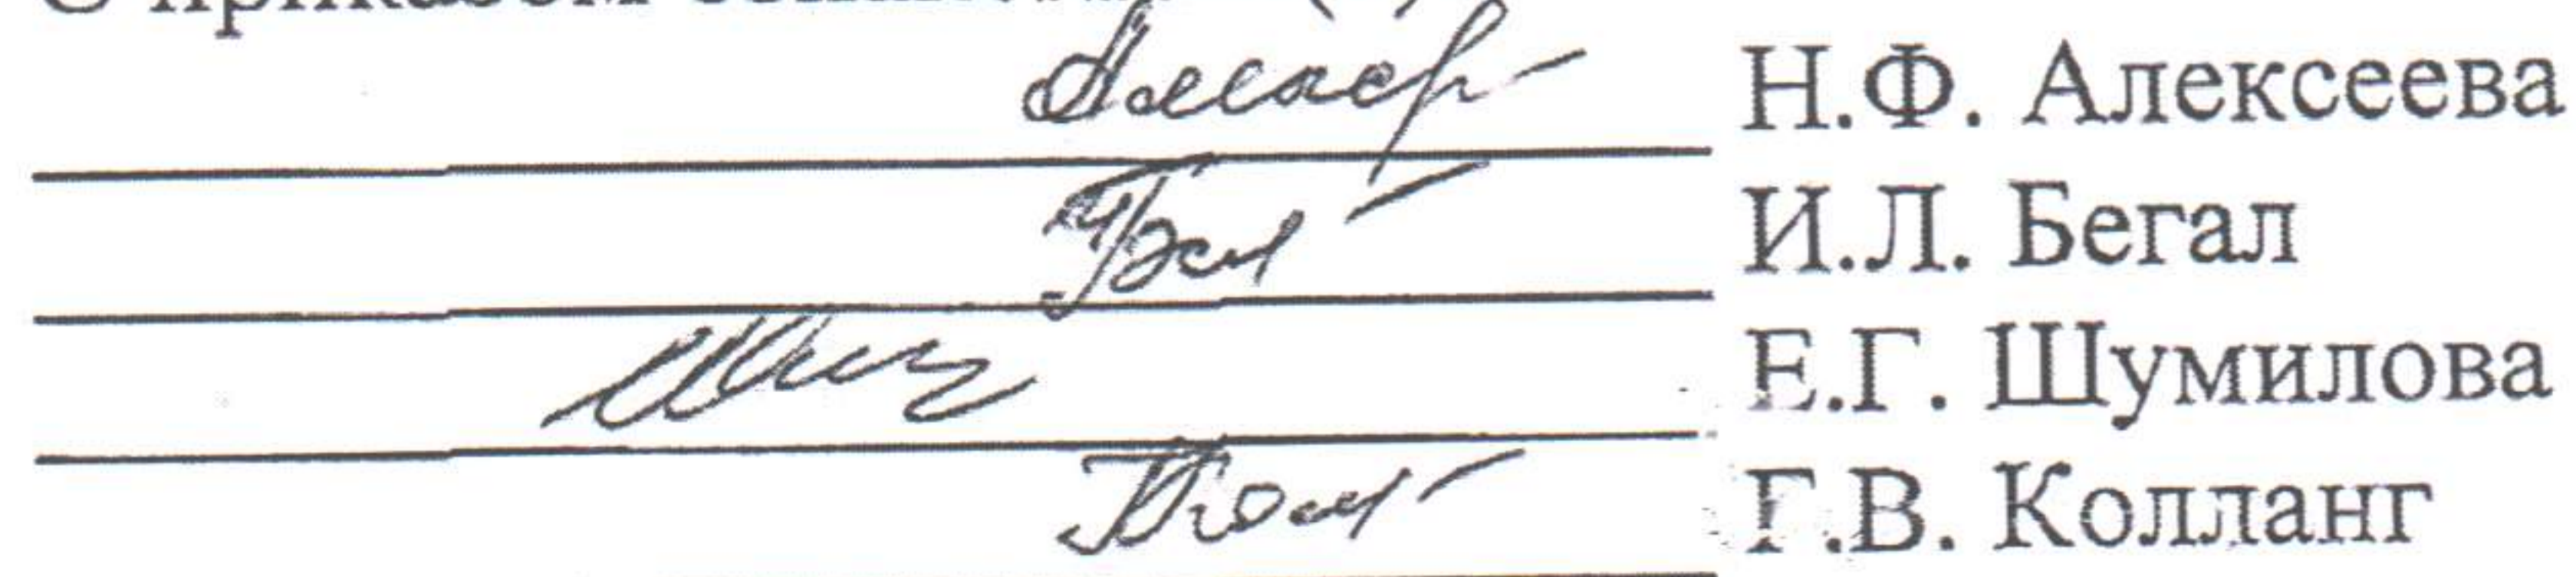 С приказом
Н.Ф. Алексеева
И.Л. Бегал
Е.Г. Шумилова
Г.В. Колланг